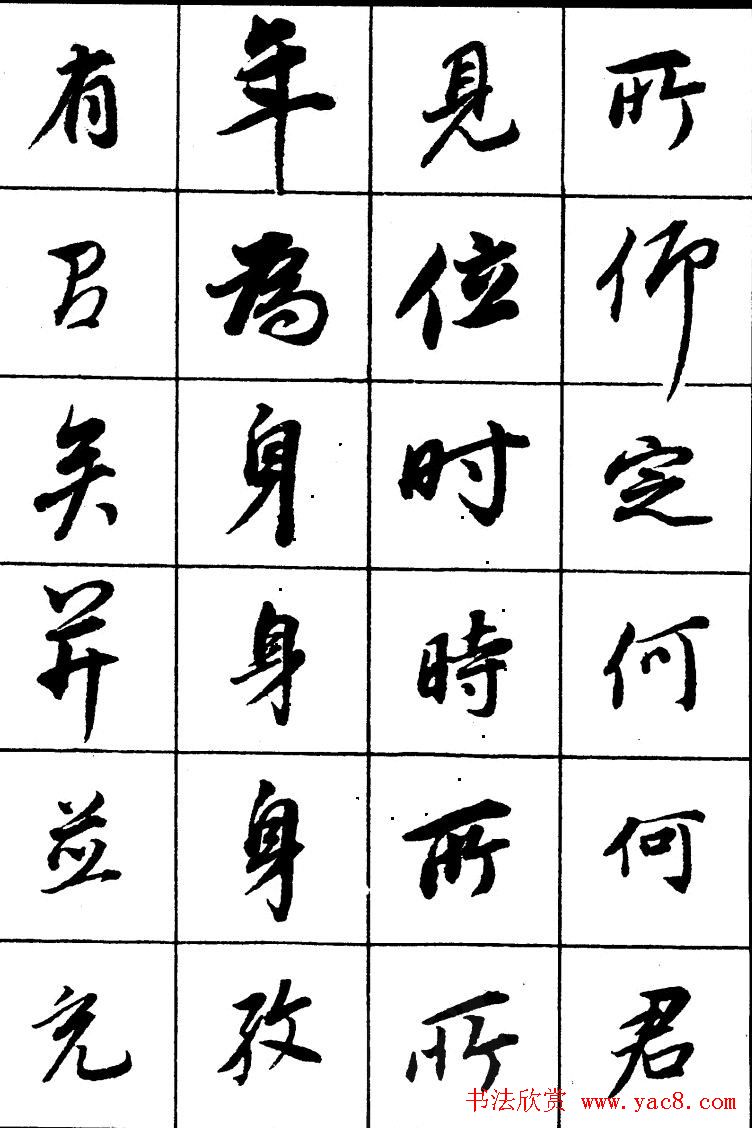 有召矣并並充
年為身身身孜
見位时時所所
所仰定何何君
书法欣赏 www.yac8.com